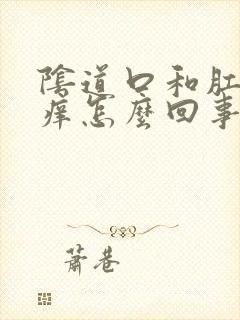 陰道口和肛
癢怎麼回事
蕭巷